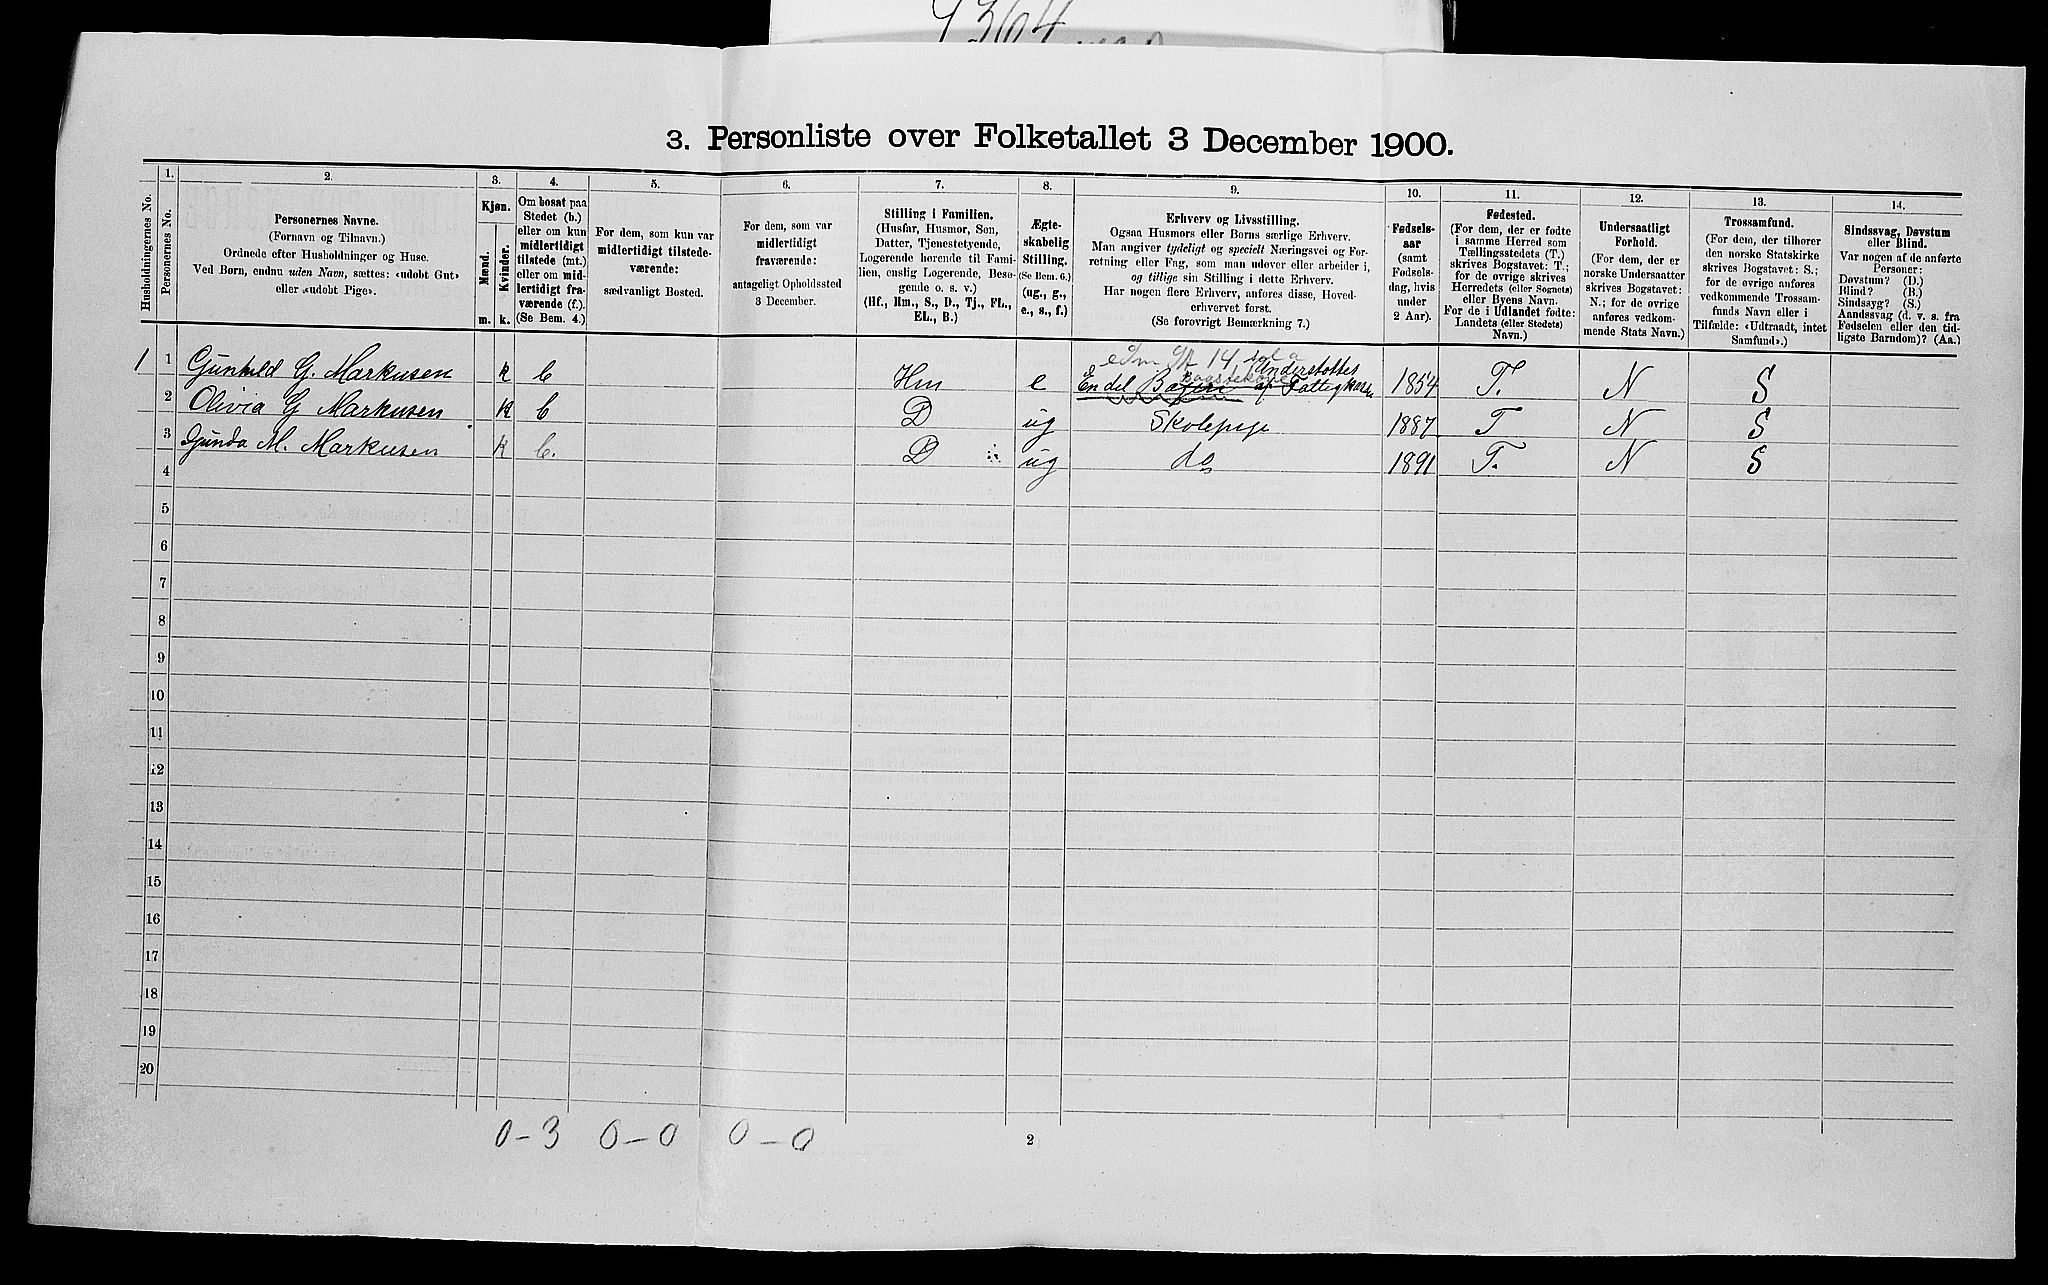 9364
3. Personliste over Folketallet 3 December 1900.
Husholdningernes No.
1.
Personernes No.
2.
Personernes Navne.
(Fornavn og Tilnavn.)
Ordnede efter Husholdninger og Huse.
Ved Børn, endnu uden Navn, sættes: «udøbt Gut»
eller «udøbt Pige».
3.
Kjøn.
Mænd.
Kvinder.
m.
k.
4.
Om bosat paa
Stedet (b.)
eller om kun
midlertidigt
tilstede (mt.)
eller om mid-
lertidigt fra-
værende (f.).
(Se Bem. 4.)
5.
For dem, som kun var
midlertidigt tilstede-
værende:
sædvanligt Bosted.
6.
For dem, som var
midlertidigt
fraværende:
antageligt Opholdssted
3 December.
7.
Stilling i Familien.
(Husfar, Husmor, Søn,
Datter, Tjenestetyende,
Logerende hørende til Fami-
lien, enslig Logerende, Besø-
gende o. s. v.)
(Hf., Hm., S., D., Tj., FL.,
EL., B.)
8.
Ægte-
skabelig
Stilling.
(Se Bem. 6.)
(ug., g.,
e., s., f.)
9.
Erhverv og Livsstilling.
Ogsaa Husmors eller Børns særlige Erhverv.
Man angiver tydeligt og specielt Næringsvei og For-
retning eller Fag, som man udøver eller arbeider i,
og tillige sin Stilling i dette Erhverv.
Har nogen flere Erhverv, anføres disse, Hoved-
erhvervet først.
(Se forøvrigt Bemærkning 7.)
10.
Fødsels-
aar
(samt
Fødsels-
dag, hvis
under
2 Aar).
11.
Fødested.
(For dem, der er fødte
i samme Herred som
Tællingsstedets (T.)
skrives Bogstavet: T.;
for de øvrige skrives
Herredets (eller Sognets)
eller Byens Navn.
For de i Udlandet fødte:
Landets (eller Stedets)
Navn.)
12.
Undersaatligt
Forhold.
(For dem, der er
norske Undersaatter
skrives Bogstavet:
N.; for de øvrige
anføres vedkom-
mende Stats Navn.)
13.
Trossamfund.
(For dem, der tilhører
den norske Statskirke
skrives Bogstavet: S.;
for de øvrige anføres
vedkommende Trossam-
funds Navn eller i
Tilfælde: «Udtraadt, intet
Samfund».)
14.
Sindssvag, Døvstum
eller Blind.
Var nogen af de anførte
Personer:
Døvstum? (D.)
Blind? (B.)
Sindssyg? (S.)
Aandssvag (d. v. s. fra
Fødselen eller den tid-
ligste Barndom)? (Aa.)
14
Understøttes
1 1 Gunhild G. Markusen k b Hm e En del af Fattigkasen 1854 T. N S
2 Olivia G Markusen k b D ug Skolepige 1887. T N S
3 Gunda M. Markusen k b. D ug do 1891 T. N S
4
5
6
7
8
9
10
11
12
13
14
15
16
17
18
19
20
0-3 0-0 0-0
2